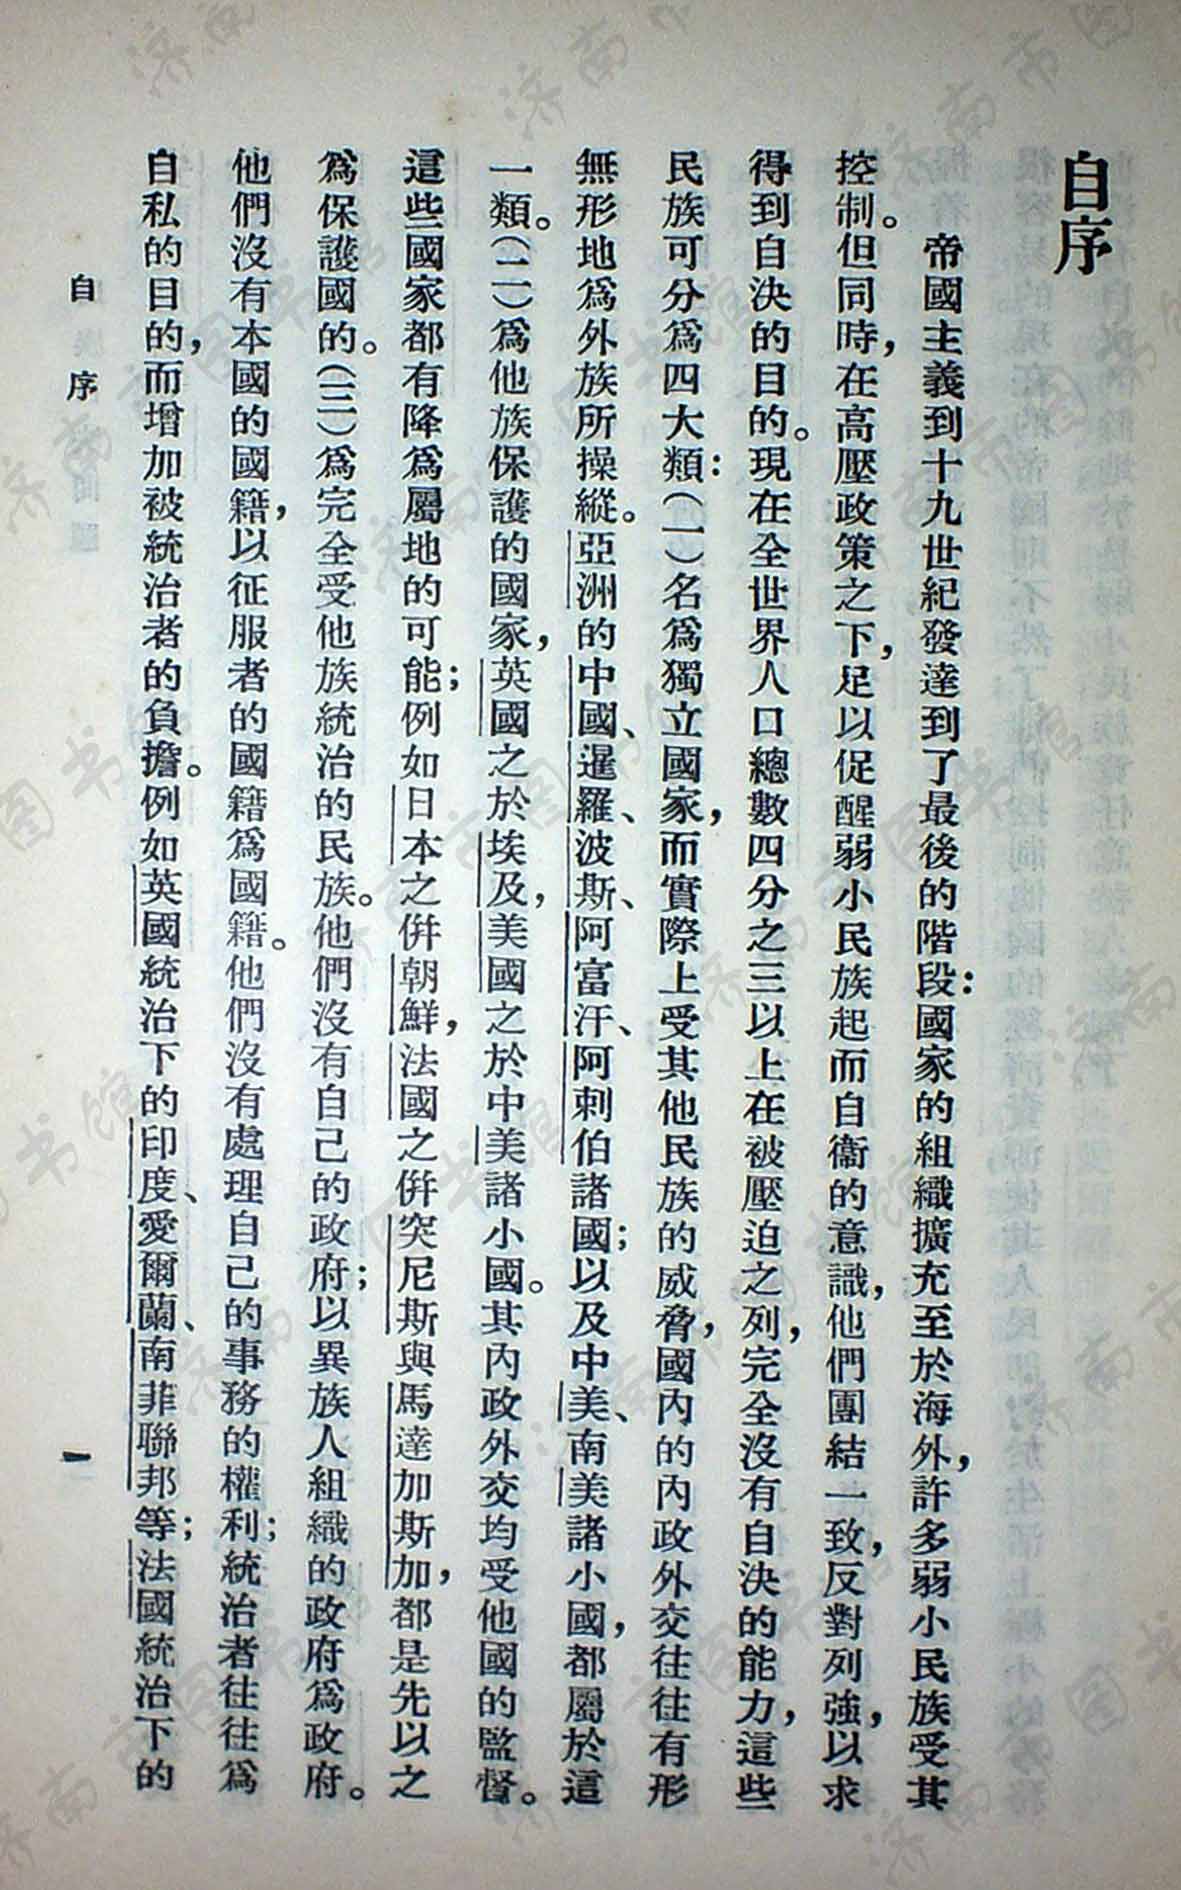 自序
帝國主義到十九世紀發達到了最後的階段：國家的組織擴充至於海外，許多弱小民族受其
控制。但同時，在高壓政策之下，足以促醒弱小民族起而自衞的意識，他們團結一致，反對列強，以求
得到自決的目的。現在全世界人口總數四分之三以上在被壓迫之列，完全沒有自決的能力，這些
民族可分爲四大類：（一）名爲獨立國家，而實際上受其他民族的威脅，國內的內政外交往往有形
無形地爲外族所操縱。亞洲的中國、暹羅、波斯、阿富汗、阿剌伯諸國；以及中美、南美諸小國，都屬於這
一類。（二）爲他族保護的國家，英國之於埃及，美國之於中美諸小國。其內政外交均受他國的監督。
這些國家都有降爲屬地的可能；例如日本之併朝鮮，法國之併突尼斯與馬達加斯加，都是先以之
爲保護國的。（三）爲完全受他族統治的民族。他們沒有自己的政府；以異族人組織的政府爲政府。
他們沒有本國的國籍，以征服者的國籍爲國籍。他們沒有處理自己的事務的權利；統治者往往爲
自私的目的，而增加被統治者的負擔。例如英國統治下的印度、愛爾蘭、南菲聯邦等；法國統治下的
自序
一
济南市图书馆